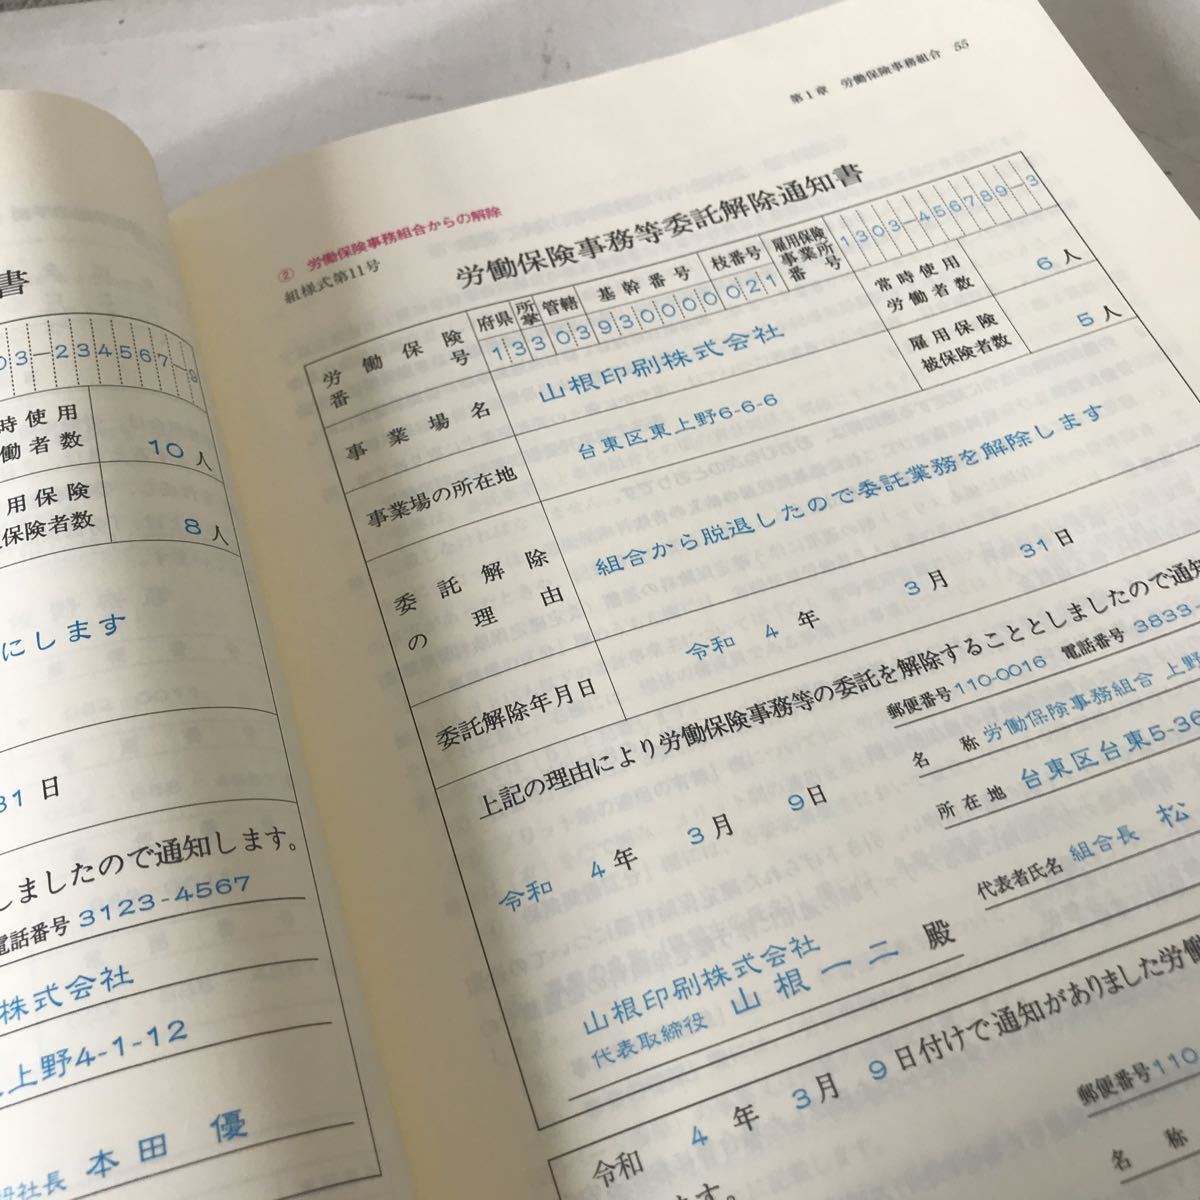 書
03-234567-9
時使用
働者数
10人
用保険
保険者数
8人
にします
31日
しましたので通知します。
電話番号 3123-4567
株式会社
上野4-1-12
社長 本田 優
第1章 労働保険事務組合 55
② 労働保険事務組合からの解除
組様式第11号
労働保険事務等委託解除通知書
労働保険番号
府県 所掌 管轄 基幹番号 枝番号
13303930000021
雇用保険事業所番号
1303-456789-3
事業場名
山根印刷株式会社
常時使用労働者数
6人
事業場の所在地
台東区東上野6-6-6
雇用保険被保険者数
5人
委託解除の理由
組合から脱退したので委託業務を解除します
委託解除年月日
令和 4 年 3 月 31 日
上記の理由により労働保険事務等の委託を解除することとしましたので通知
郵便番号 110-0016 電話番号 3833-
名称 労働保険事務組合 上野
所在地 台東区台東5-36
代表者氏名 組合長 松
令和 4 年 3 月 9 日
山根印刷株式会社
代表取締役 山根 一二 殿
令和 4 年 3 月 9 日付けで通知がありました労働
ます。
郵便番号 110-
名称